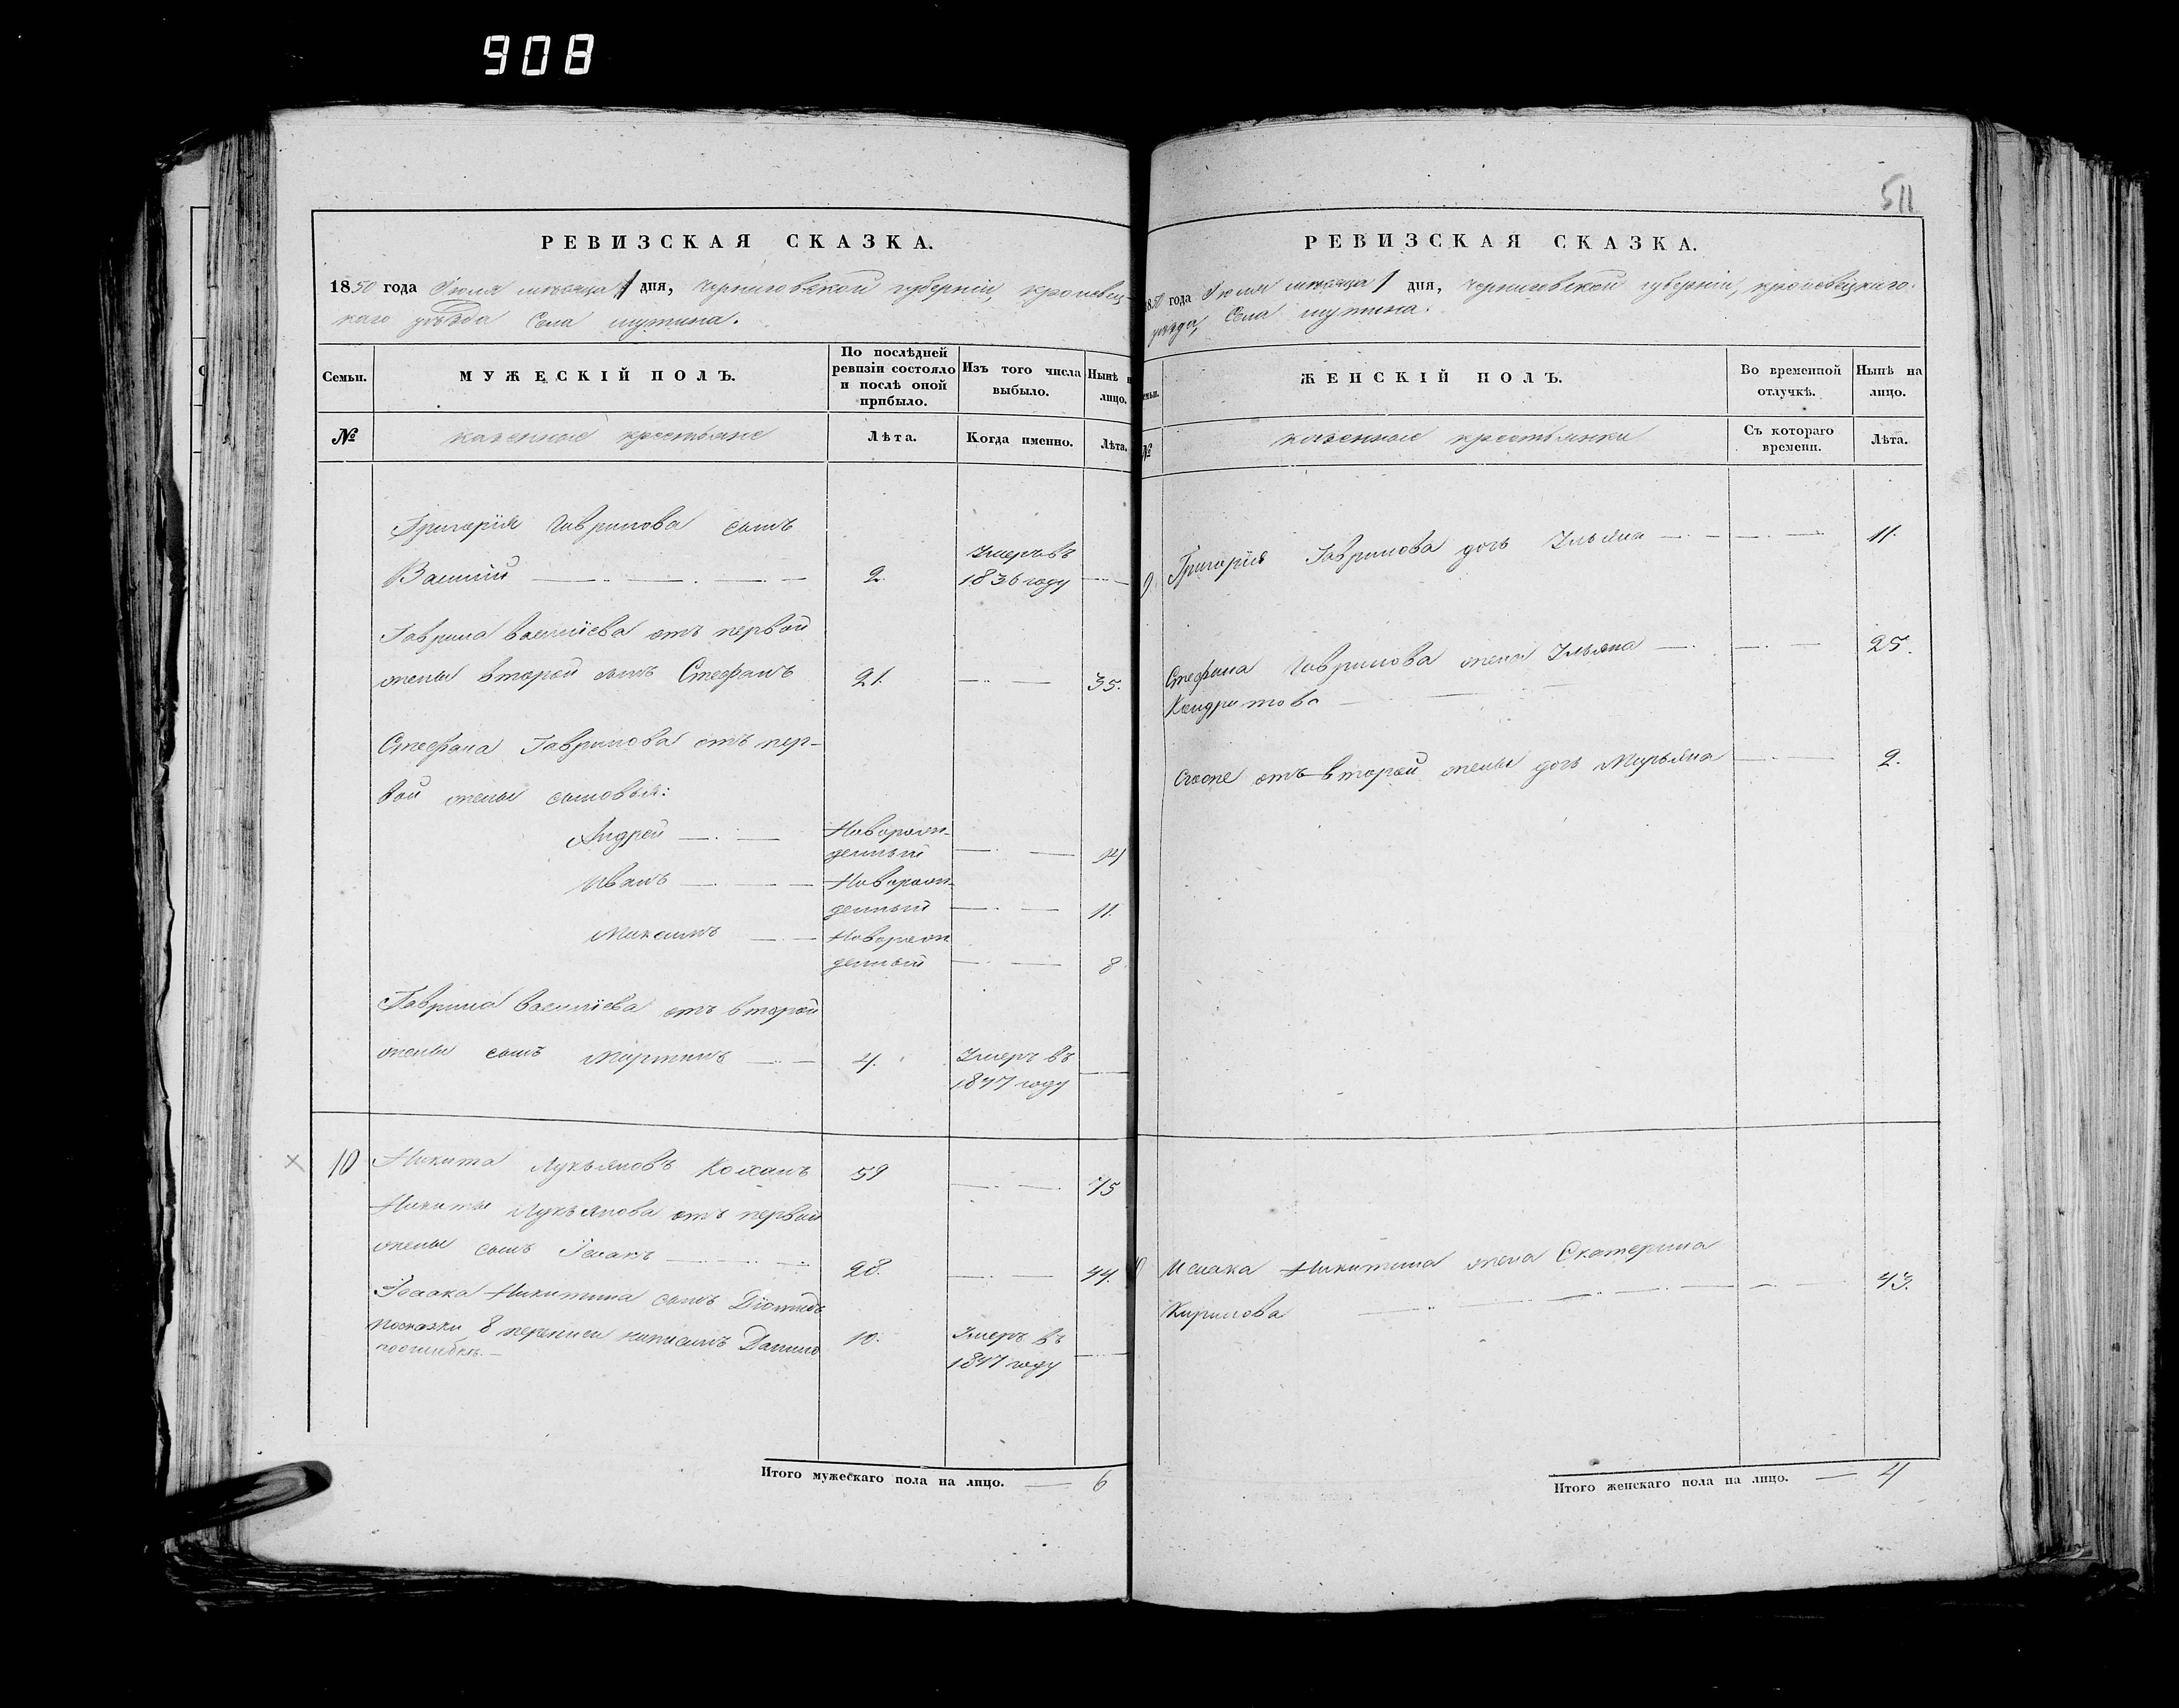 908
РЕВИЗСКАЯ СКАЗКА.
1850 года Іюля мѣсяца 1 дня, Черниговской губерніи, кролевец-
каго уѣзда Села мутина.
Семьи.
МУЖЕСКІЙ ПОЛЪ.
По послѣдней ревизіи состояло и послѣ оной прибыло.
Изъ того числа выбыло.
Нынѣ н лицо.
№
казенные крестьяне
Лѣта.
Когда именно.
Лѣта.
Григорія Гаврилова сынъ
Василій 2. Умеръ въ 1836 году
Гаврила Василіева отъ первой
жены второй сынъ Стефанъ 21. 35.
Стефана Гаврилова отъ пер-
вой жены сыновья:
Андрей Новорож-
денный 14
Иванъ Новорож-
денный 11.
Максимъ Новорож
денный 8
Гаврила Василіева отъ второй
жены сынъ Мартинъ 4. Умеръ въ
1847 году
10 Никита Лукьяновъ 59 75
Никиты Лукьянова отъ первой
жены сынъ Ісаакъ 28. 44.
Ісаака Никитина сынъ Діомидъ
по сказки 8 переписи написанъ Данило 10. Умеръ въ
по ошибкѣ. 1847 году
Итого мужескаго пола на лицо. 6
511
РЕВИЗСКАЯ СКАЗКА.
1850 года Іюля мѣсяца 1 дня, Черниговской губерніи, кролевецкаго
уѣзда, Села мутина.
емьи.
ЖЕНСКІЙ ПОЛЪ.
Во временной отлучкѣ.
Нынѣ на лицо.
№
казенные крестьянки
Съ котораго времени.
Лѣта.
9 Григорія Гаврилова дочь Ульяна 11.
Стефана Гаврилова жена Ульяна 25.
Кондратова
Егоже отъ второй жены дочь Марьяна 2.
10 Исаака Никитина жена Екатерина
Кирилова 43.
Итого женскаго пола на лицо. 4